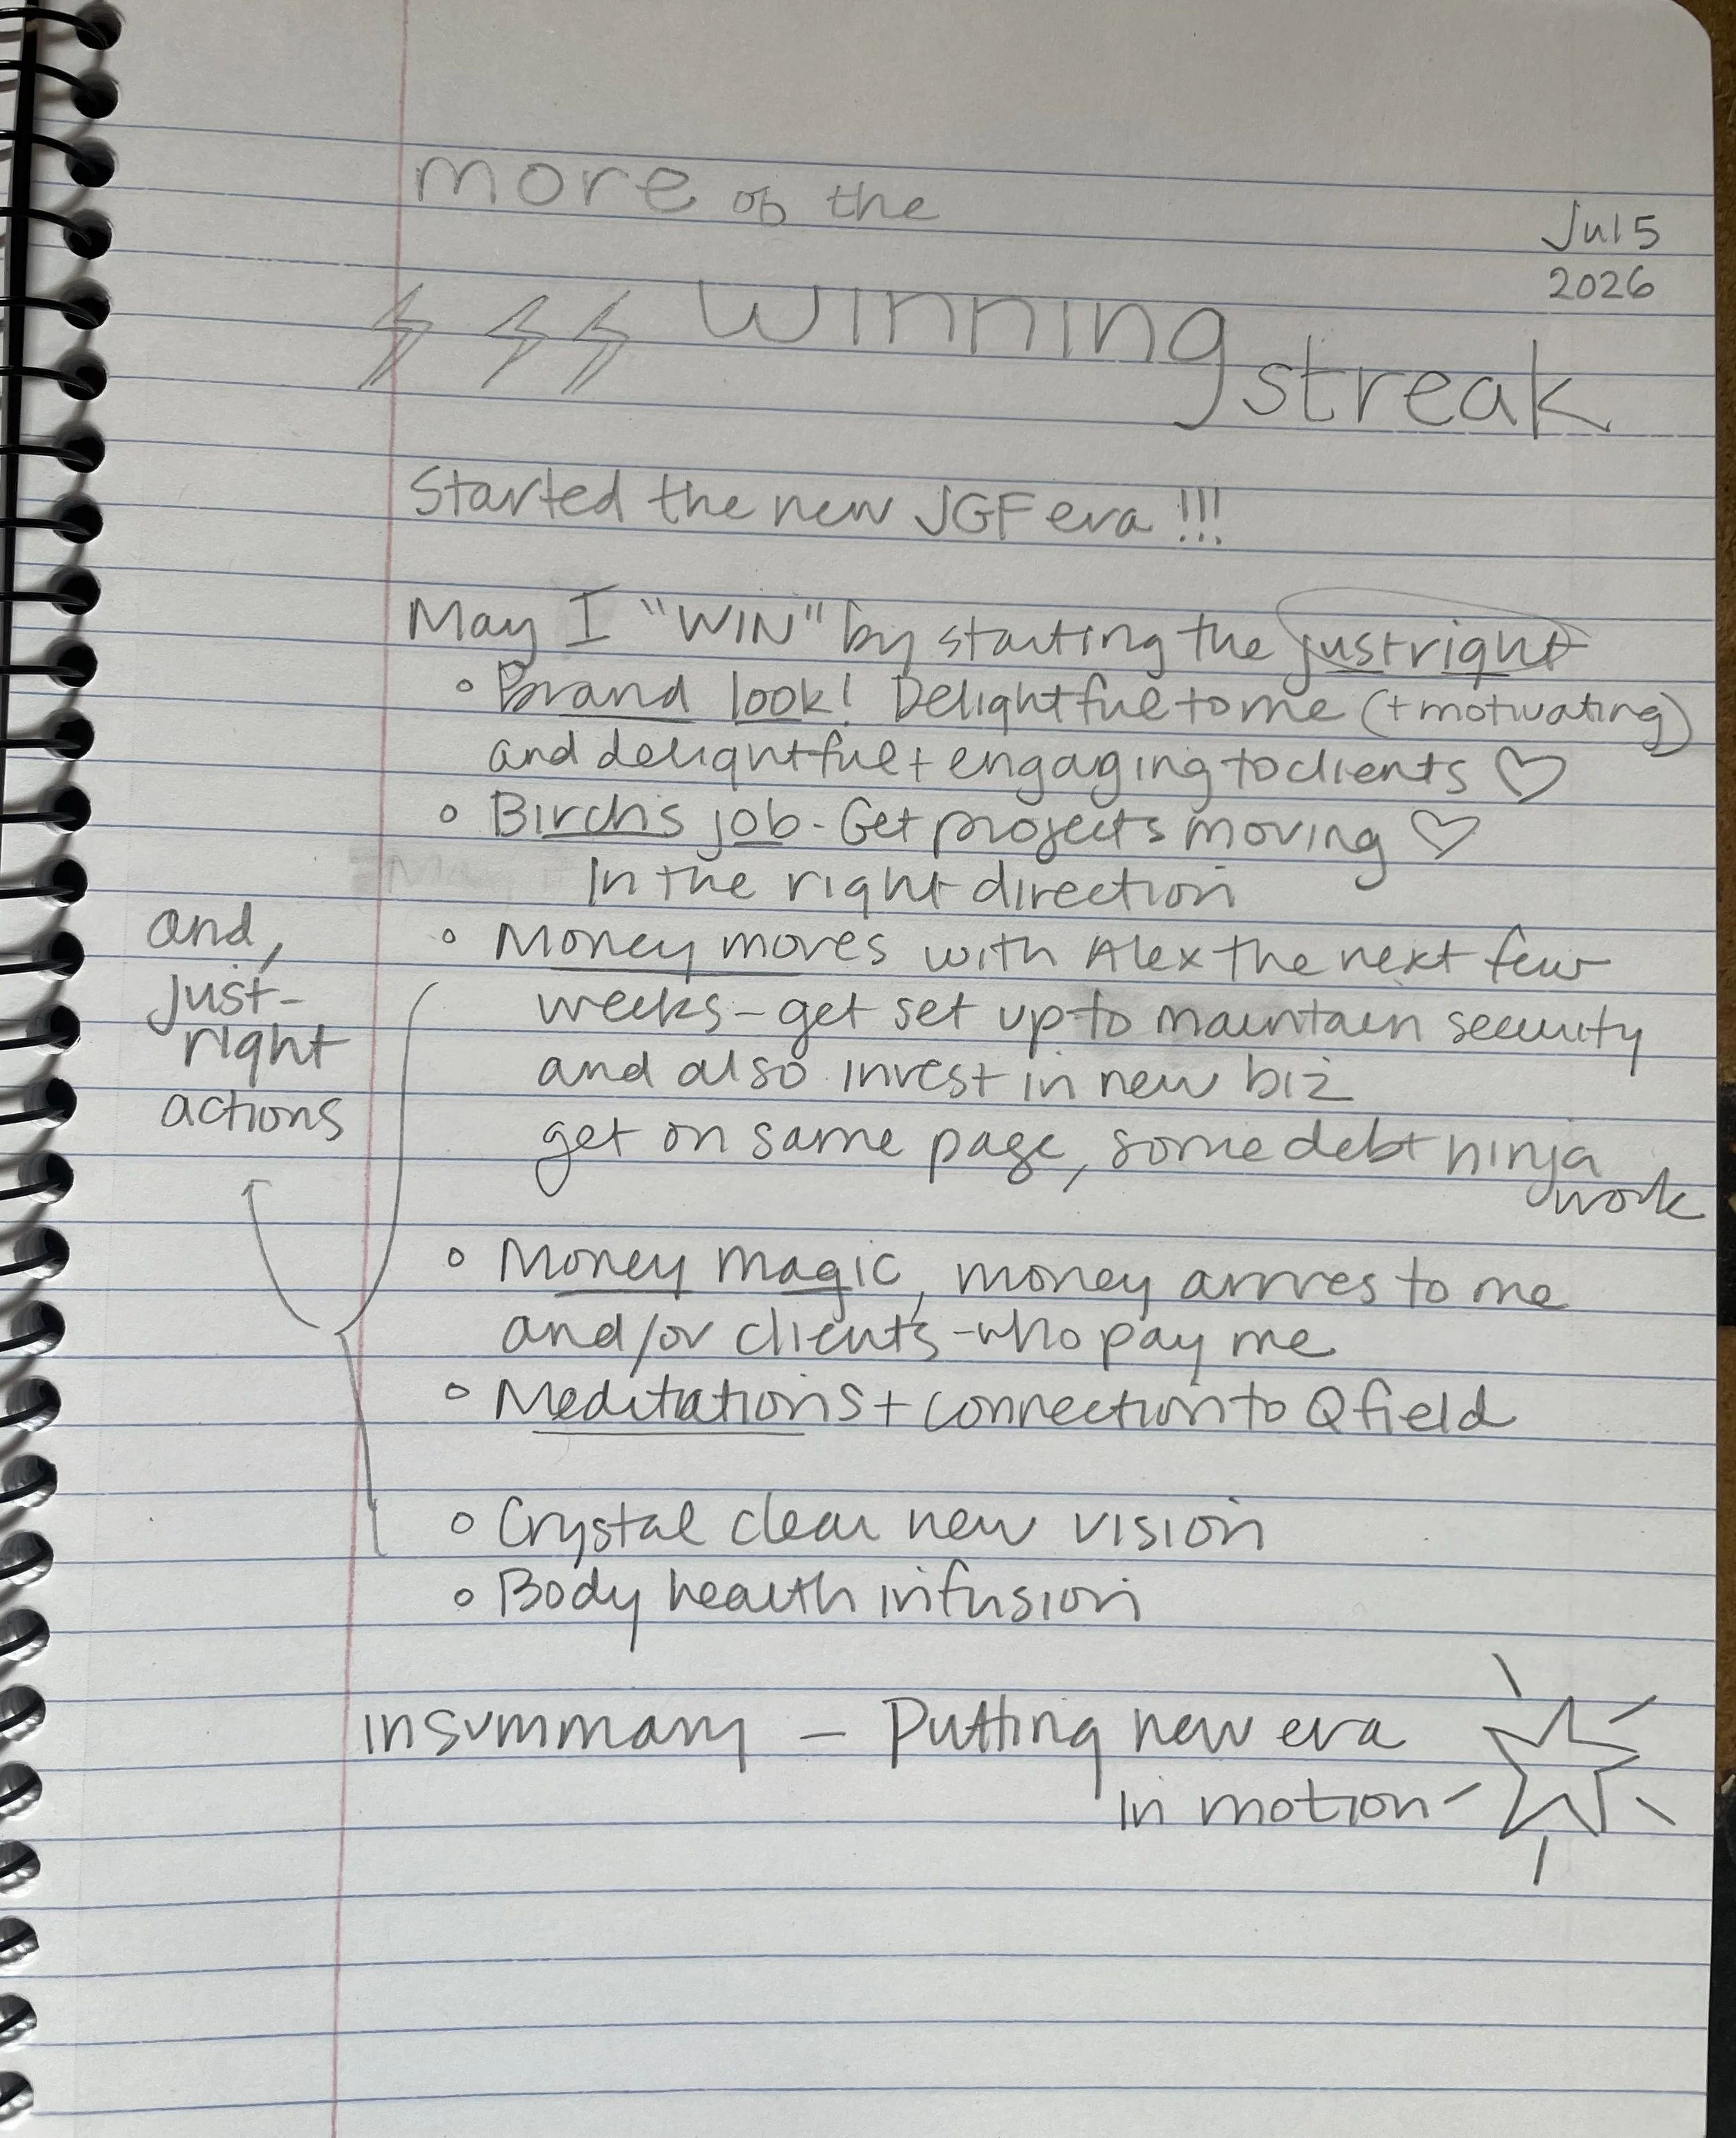 more of the
Jul 5
2026
winning streak
Started the new JGF era !!!
May I "WIN" by starting the just right
• Brand look! Delightful to me (+ motivating)
and delightful + engaging to clients ♡
• Birch's job - Get projects moving ♡
in the right direction
• Money moves with Alex the next few
weeks - get set up to maintain security
and also invest in new biz
get on same page, some debt ninja
work
• Money magic, money arrives to me
and/or clients - who pay me
• Meditations + connection to Q field
• Crystal clear new vision
• Body health infusion
and,
just-
right
actions
in summary - Putting new era
in motion